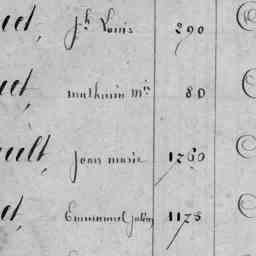 uet, Jh Louis 290
uet, mathurin Min 80
ault, jean marie 1260
et, Emmanuel julien 1175